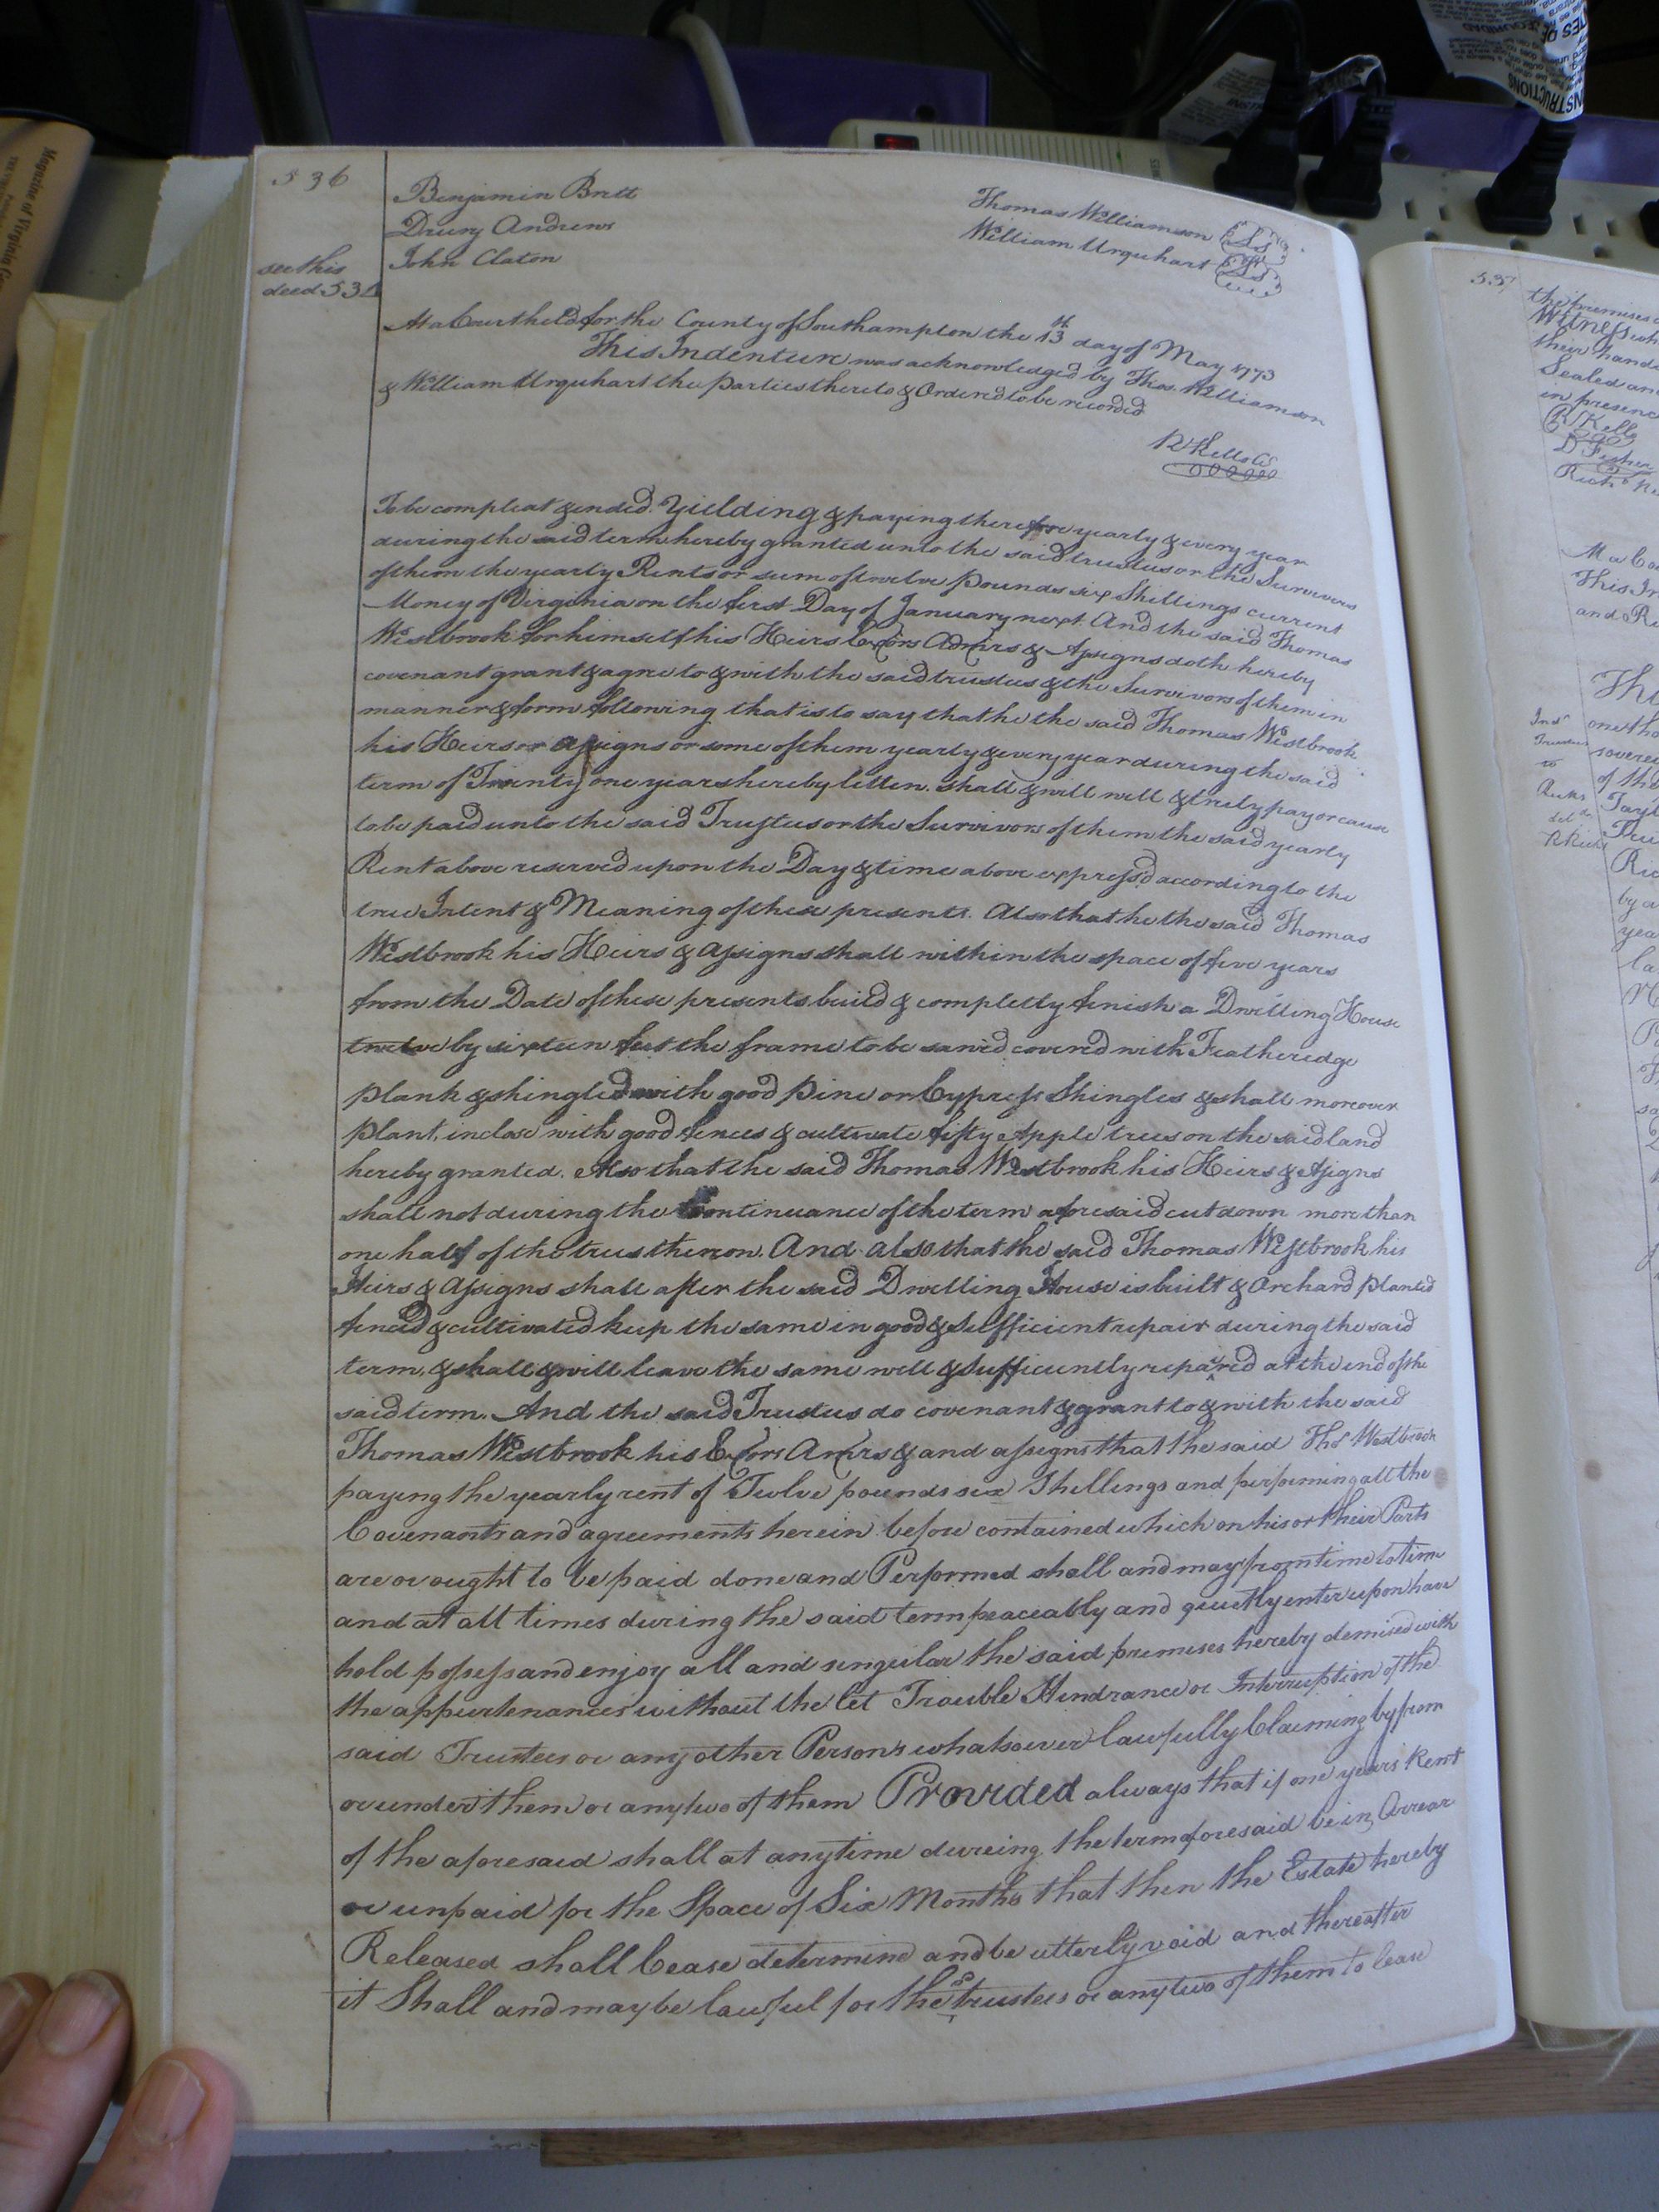 536
Benjamin Britt
Drury Andrews
John Claton
Thomas Williamson Ls
William Urquhart Ls
see this
deed 53
At a Court held for the County of Southampton the 13th day of May 1773
This Indenture was acknowledged by Thos. Williamson
& William Urquhart the Parties thereto & Ordered to be recorded
R Kello CS
To be compleat & ended. Yielding & paying therefore yearly & every year
during the said term hereby granted unto the said trustees or the Survivors
of them the yearly Rents or sum of twelve Pounds six Shillings current
Money of Virginia on the first Day of January next. And the said Thomas
Westbrook for himself his Heirs Exōrs Admīrs & Assigns doth hereby
covenant grant & agree to & with the said trustees & the Survivors of them in
manner & form following that is to say that he the said Thomas Westbrook
his Heirs or assigns or some of them yearly & every year during the said
term of Twenty one years hereby letten. shall & will well & truely pay or cause
to be paid unto the said Trustees or the Survivors of them the said yearly
Rent above reserved upon the Day & time above express'd according to the
true Intent & Meaning of these presents. Also that he the said Thomas
Westbrook his Heirs & assigns shall within the space of five years
from the Date of these presents build & completly finish a Dwelling House
twelve by sixteen feet the frame to be sawed covered with Featheredge
plank & shingled with good Pine or Cypress Shingles & shall moreover
plant, inclose with good fences & cultivate fifty Apple trees on the said land
hereby granted. Also that the said Thomas Westbrook his Heirs & Assigns
shall not during the Continuance of the term aforesaid cut down more than
one half of the trees thereon. And also that the said Thomas Westbrook his
Heirs & assigns shall after the said Dwelling House is built & Orchard planted
fenced & cultivated keep the same in good & Sufficient repair during the said
term, & shall & will leave the same well & Sufficiently repaired at the end of the
said term. And the said Trustees do covenant & grant to & with the said
Thomas Westbrook his Exōrs Amīrs & and assigns that the said Thos Westbrook
paying the yearly rent of Twelve pounds six Shillings and performing all the
Covenants and agreements herein before contained which on his or their Parts
are or ought to be paid done and Performed shall and may from time to time
and at all times during the said term peaceably and quietly enter upon have
hold possess and enjoy all and singular the said premises hereby demised with
the appurtenances without the let Trouble Hindrance or Interruption of the
said Trustees or any other Person's whatsoever lawfully Claiming by from
or under them or any two of them Provided always that if one years Rent
of the aforesaid shall at anytime dureing the term aforesaid be in Arrear
or unpaid for the Space of Six Months that then the Estate hereby
Released shall Cease determine and be utterly void and thereafter
it Shall and may be lawful for the sd trustees or any two of them to lease
537
the premises
Witness
their hands
Sealed and
in presence
R Kello
D Fisher
Richd
At a Co
This In
and
one tho
of the
by a
yea
Indr
Trustees
to
Ricks
deld